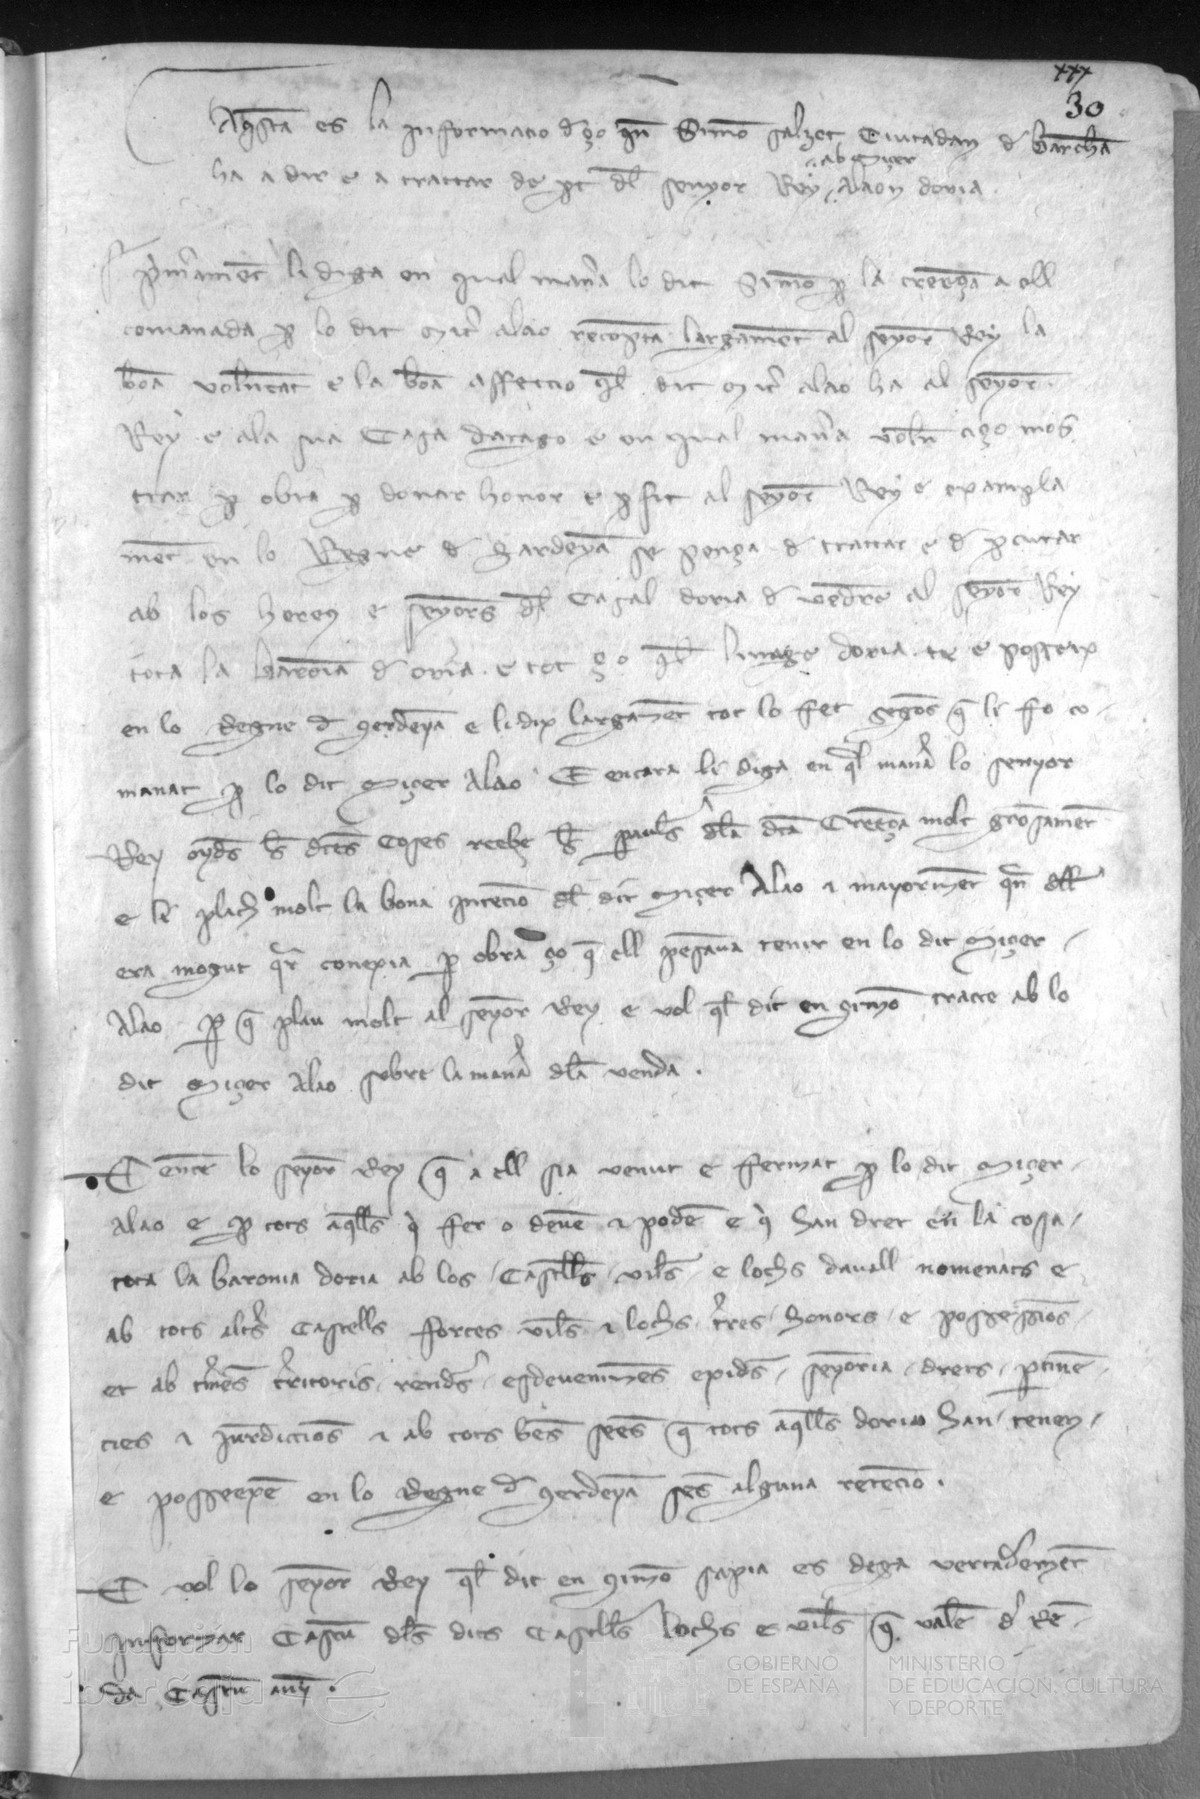 xxx
30
Aq̄sta es la informacio d̄ ço q̄n Simō salzet Ciutadan d̄ barchā
ab Miçer
ha a dir e a tractar de p̄t dl̄ senyor Rey alaon doria.
p̄m̄ament li diga en qual man̄a lo dit Simō p̱ la creēça a ell
comanada p̱ lo dit Mic̄ alao recōpta largamēt al seyōr Rey la
bōa volūtat e la bōa affeccio q̄l dit Mic̄ alao ha al seyōr
Rey e ala sua Casa darago e en qual man̄a voln̄ aço mos
trar p̱ obra p̱ donar honor e p̱fit al seyōr Rey e exampla
mēt en lo Regne d̄ Sardeyā se pensa d̄ tractar e d̄ p̱curar
ab los hereus e seyōrs dl̄ Casal doria d̄ vēdre al seyōr Rey
tota la baronia d̄ oria e tot ço q̄l linatge doria te e posseix
en lo Regne d̄ Serdeyā e li dix largamēt tot lo fet segōs q̄ li fo co
manat p̱ lo dit Miçer Alao E encara li diga en ql̄ man̄a lo senyor
Rey oydēs les dc̄es Coses reebe les paraul̄s dl̄a dc̄a Creēça molt gc̄osamēt
e li plach molt la bona intēcio dl̄ dit Miçer Alao e mayormēt qn̄ dell
era mogut qr̄ conexia p̱ obra ço q̄ ell pēsaua tenir en lo dit Miçer
Alao p̱ q̄ plau molt al seyōr Rey e vol ql̄ dit en Simō tracte ab lo
dit Miçer Alao sobre la man̄a dl̄a venda.
E entē lo seyōr Rey q̄ a ell sia venut e fermat p̱ lo dit Miçer
Alao e p̱ tots aq̄lls q̄ fer o deuē e podē e q̄ han dret en la cosa
tota la baronia doria ab los Castells viles e lochs dauall nomenats e
ab tots altr̄s Castells forces viles e lochs t̄res honors e possessiōs
et ab t̄mēs t̄ritoris rendes esdeuenimēs exides seyōria drets p̱tinē
cies e jurdicciōs e ab tots bēs seēs q̄ tots aq̄lls doria han tenen
e posseexē en lo Regne d̄ Serdeyā sēs alguna retēcio.
E vol lo seyōr Rey ql̄ dit en Simō sapia es dega vertaderamēt
informar Cascū dls̄ dits Castells lochs e viles q̄ valē d̄ Rē
da Cascū any.
Fundación
ibercaja
GOBIERNO
DE ESPAÑA
MINISTERIO
DE EDUCACIÓN, CULTURA
Y DEPORTE